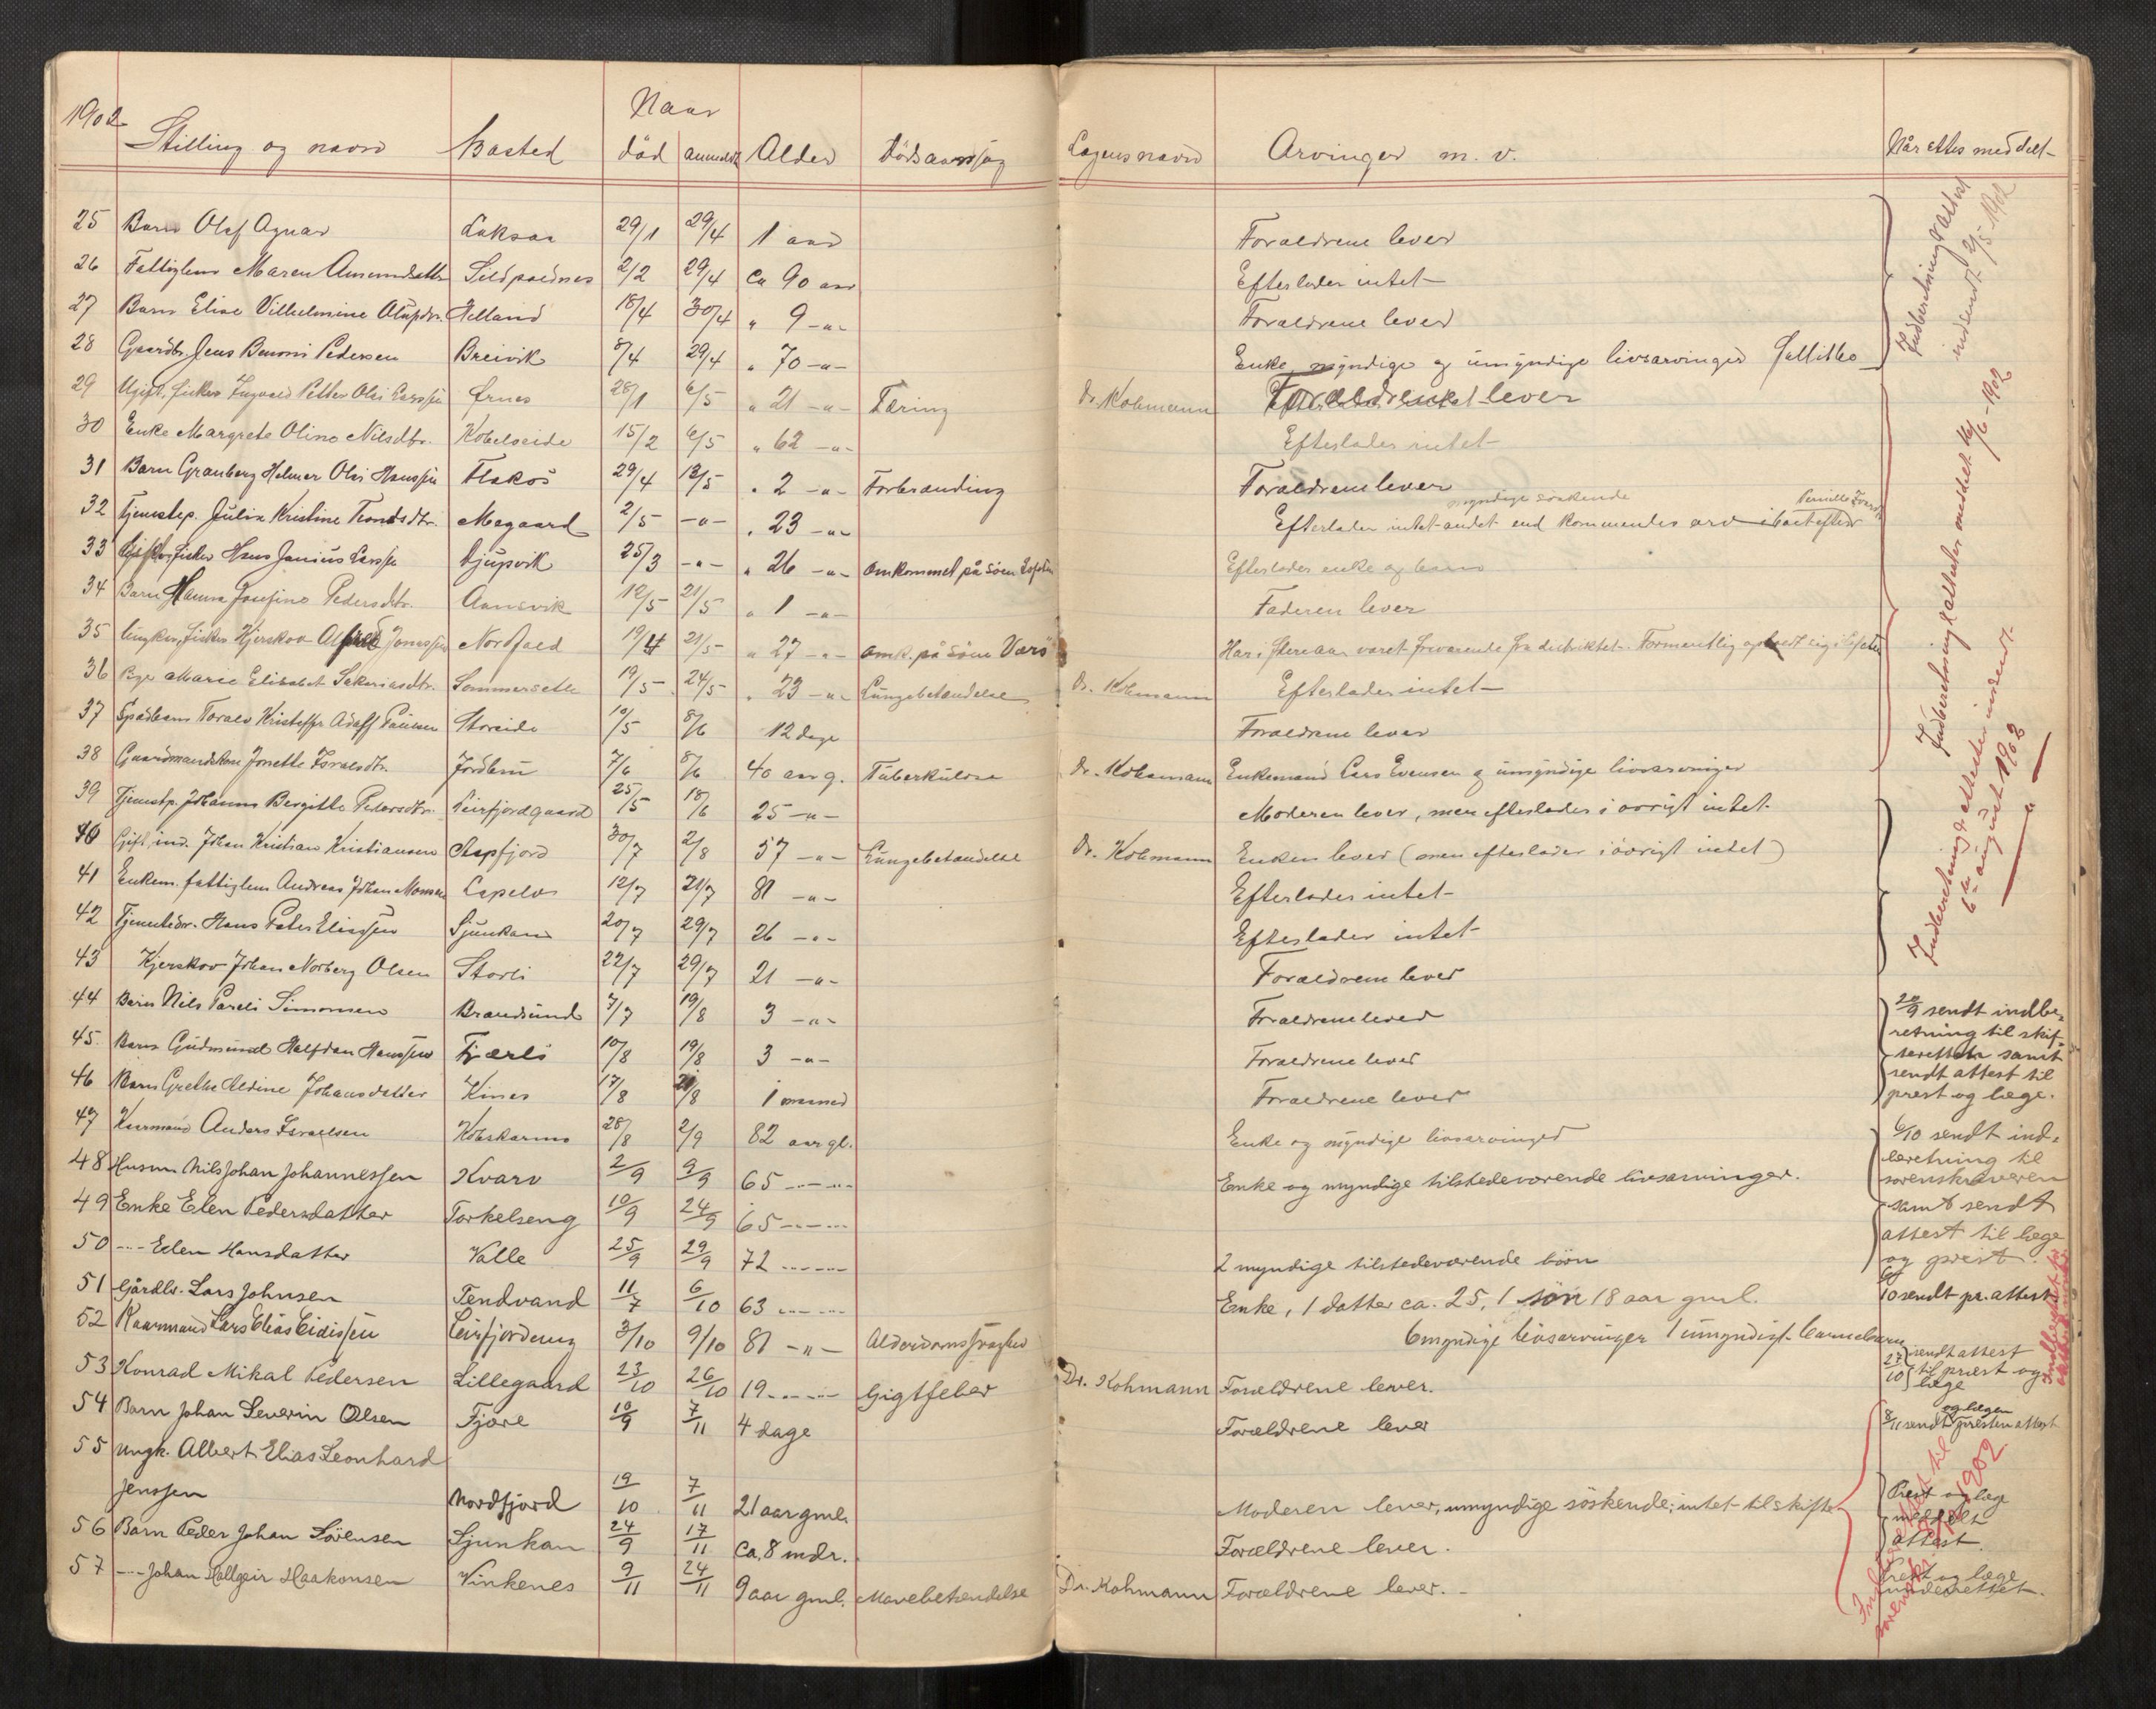 1902
Stilling og navn Bosted Naar død anmeldt Alder Dødsaarsag Lægens navn Arvinger m. v. Når attes meddelt
25 Barn Olaf Agnar Laksaa 29/1 29/4 1 aar Forældrene lever
26 Fattiglem Maren Amundsdatter Sildpoldnes 2/2 29/4 Ca 90 aar Efterlader intet
27 Barn Elise Vilhelmine Olufsdr. Helland 18/4 30/4 " 9 -"- Forældrene lever
28 Gaardbr. Jens Benoni Pedersen Breivik 8/4 29/4 " 70 -"- Enke, myndige og umyndige livsarvinger
29 Ugift, fisker Ingvald Petter Olai Larssen Ørnes 28/1 6/5 " 21 -"- Tæring Dr. Kohmann Forældrene lever
30 Enke Margrete Oline Nilsdtr. Kobelveide 15/2 6/5 " 62 -"- Efterlader intet
31 Barn Granberg Helmer Olai Hanssen Flakos 29/4 13/5 " 2 -"- Forbrænding Forældrene lever
32 Tjenestep. Julia Kristine Trondsdtr. Megaard 2/5 -"- " 23 -"- Efterlader intet andet end kommendes arv i boet efter
myndige søskende Pernille
33 fisker Hans Janius Larssen Djupvik 25/3 -"- " 26 -"- Omkommet på søen Lofoten Efterlader enke og barn
34 Barn Hanna Josefine Pedersdtr. Aansvik 12/5 21/5 " 1 -"- Faderen lever
35 Ungkar, fisker Kjerskov Alfred Jonassen Nordfold 19/4 21/5 " 27 -"- Omk. på søen Værø Har i flere aar været fraværende fra distriktet. Formentlig opholdt sig i
36 Pige Marie Elisabet Sakariasdtr. Sommersetter 19/5 24/5 " 23 -"- Lungebetændelse Dr. Kohmann Efterlader intet
37 Spædbarn Toralv Kristoffer Adolf Paulsen Storeide 10/5 8/6 12 dage Forældrene lever
38 Gaardmandskone Jonette Israelsdtr. Jordbru 7/6 8/6 40 aar g. Tuberkulose Dr. Kohmann Enkemand Lars Evensen og umyndige livsarvinger
39 Tjenestp. Johanna Bergitte Pedersdtr. Leirfjordgaard 25/5 18/6 25 -"- Moderen lever, men efterlader i øvrigt intet.
40 Gift, ind. Johan Kristian Kristiansen Aspfjord 30/7 2/8 57 -"- Lungebetændelse Dr. Kohmann Enken lever (men efterlader i øvrigt intet)
41 Enkem. fattiglem Andreas Johan Monsen Lapelv 12/7 21/7 81 -"- Efterlader intet-
42 Tjenestedr. Hans Peter Eliassen Sjunkan 20/7 29/7 26 -"- Efterlader intet
43 Kjerskov Johan Norberg Olsen Storli 22/7 29/7 21 -"- Forældrene lever
44 Barn Nils Pareli Simonsen Brandsund 7/7 19/8 3 -"- Forældrene lever
45. Barn Gudmund Halfdan Hanssen Fjærli 10/8 19/8 3 -"- Forældrene lever
46 Barn Grethe Aldine Johansdatter Kines 17/8 21/8 1 maaned Forældrene lever
47 Kaarmand Anders Israelsen Kobskarmo 28/8 2/9 82 aar gl. Enke og myndige livsarvinger
48 Husm. Nils Johan Johannessen Kvarv 2/9 9/9 65 -"- Enke og myndige tilstedeværende livsarvinger.
49 Enke Elen Pedersdatter Torkelseng 10/9 24/9 65 -"-
50 -"- Elen Hansdatter Valle 25/9 29/9 72 -"- 2 myndige tilstedeværende børn
51 Gårdbr. Lars Johnsen Tendvand 11/7 6/10 63 -"- Enke, 1 datter ca. 25, 1 søn 18 aar gml.
52 Kaarmand Lars Elias Eidissen Leirfjordeng 3/10 9/10 81 -"- Alderdomssvaghed 6 myndige livsarvinger 1 umyndigt barnebarn
53 Konrad Mikal Pedersen Lillegaard 23/10 26/10 19 -"- Gigtfeber Dr. Kohmann Forældrene lever.
54 Barn Johan Severin Olsen Fjøre 10/9 7/11 4 dage Forældrene lever
55 Ungk. Albert Elias Leonhard
Jenssen Nordfjord 19/10 7/11 21 aar gml. Moderen lever, umyndige søskende; intet til skifte
56 Barn Peder Johan Sørensen Sjunkan 24/9 17/11 Ca. 8 mdr. Forældrene lever.
57 -"- Johan Hallgeir Haakonsen Vinkenes 9/11 24/11 9 aar gml. Mavebetændelse Dr. Kohmann Forældrene lever. -
Indberetning & attest
indsendt 2/5 1902
Indberetning & attester meddelt 11/6-1902
Indberetning & attester indsendt
6te august 1902
20/9 sendt indbe-
retning til skif-
teretten samt
sendt attest til
prest og læge.
6/10 sendt ind-
beretning til
sorenskriveren
samt sendt
attest til læge
og prest.
10 sendt pr. attest
27/10 sendt attest
til præst og
læge
og lægen
8/11 sendt presten attest
Prest og læge
meddelt
attest.
Prest og læge
underrettet.
1902